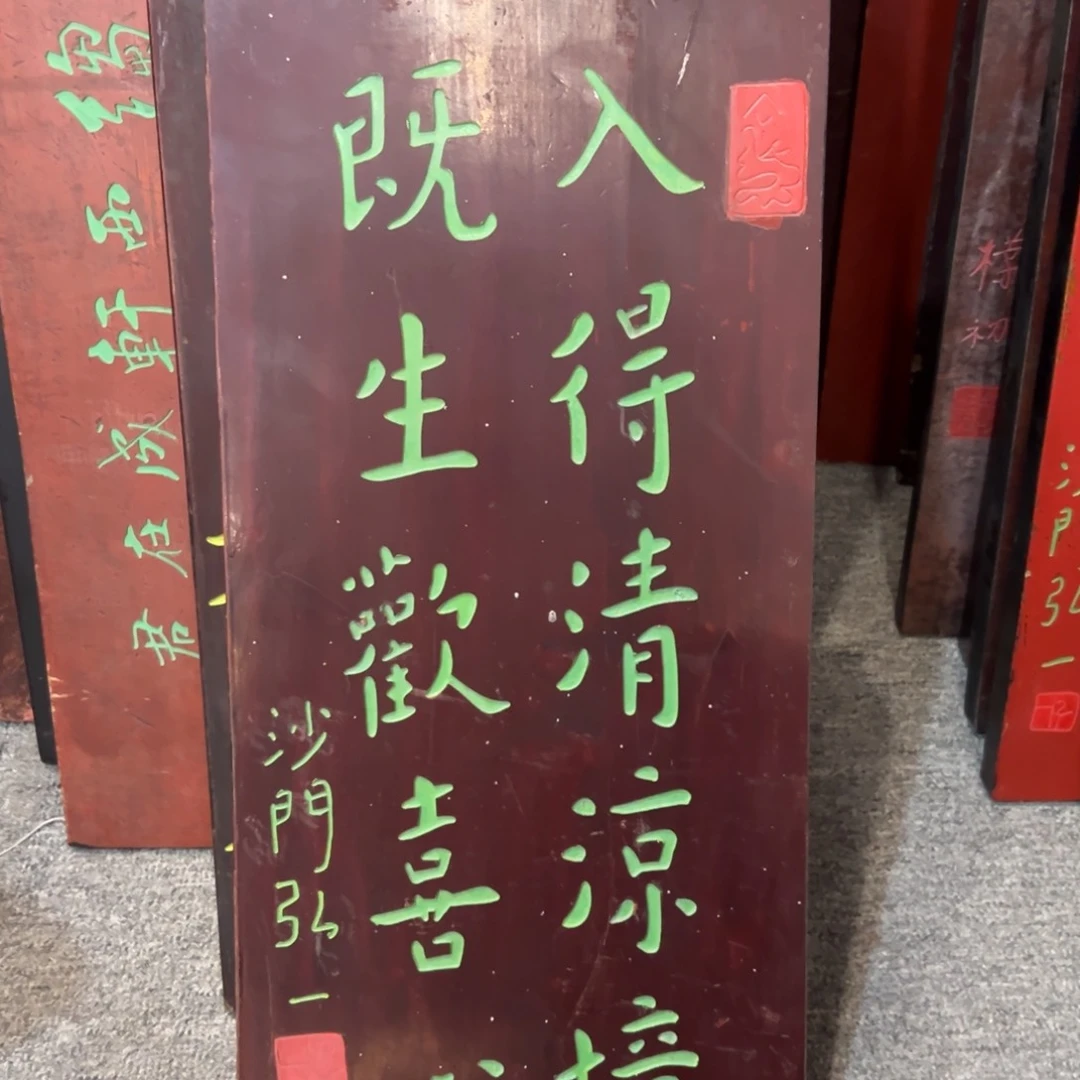 入得清涼境
既生歡喜
沙門弘一
西軒
在
君
樸初
沙門弘一